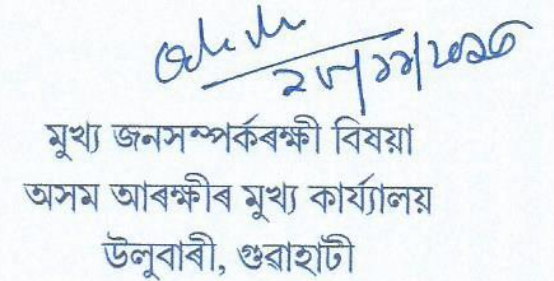 ২৮/১১/২০১৬
মুখ্য জনসম্পৰ্কৰক্ষী বিষয়া
অসম আৰক্ষীৰ মুখ্য কাৰ্য্যালয়
উলুবাৰী, গুৱাহাটী